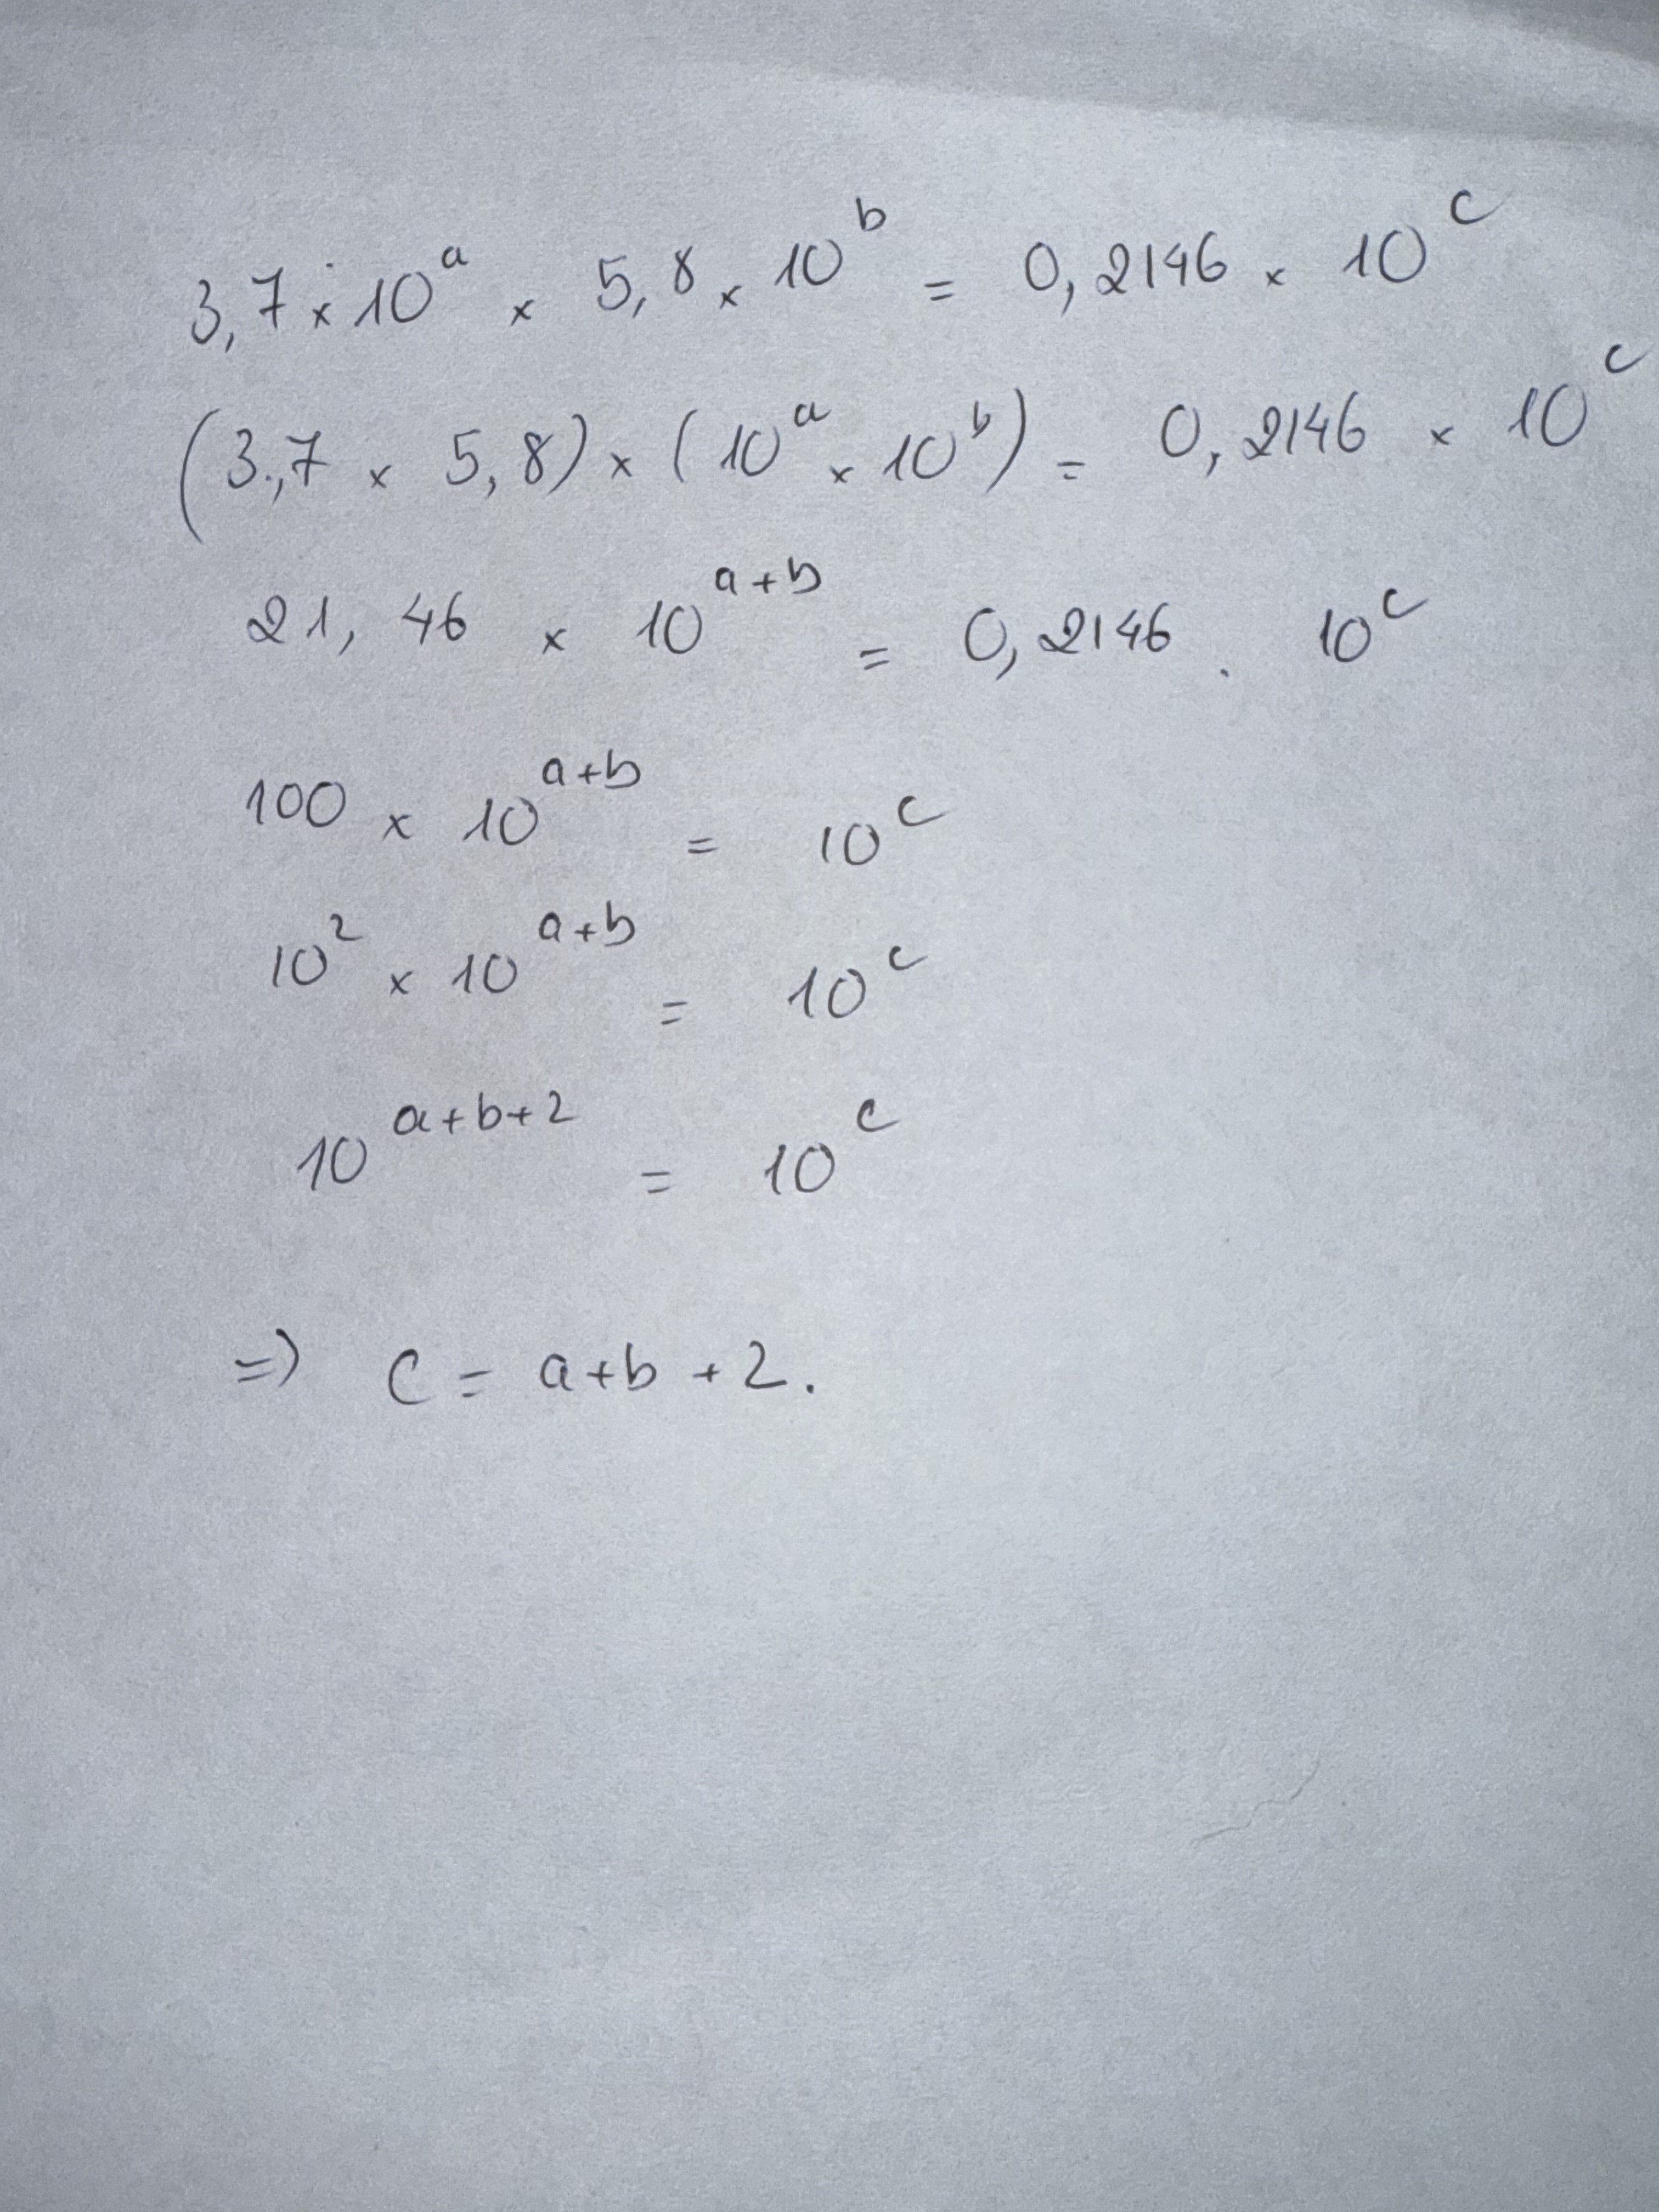 3,7 × 10^a × 5,8 × 10^b = 0,2146 × 10^c
(3,7 × 5,8) × (10^a × 10^b) = 0,2146 × 10^c
21,46 × 10^a+b = 0,2146 . 10^c
100 × 10^a+b = 10^c
10^2 × 10^a+b = 10^c
10^a+b+2 = 10^c
=) c = a+b +2.